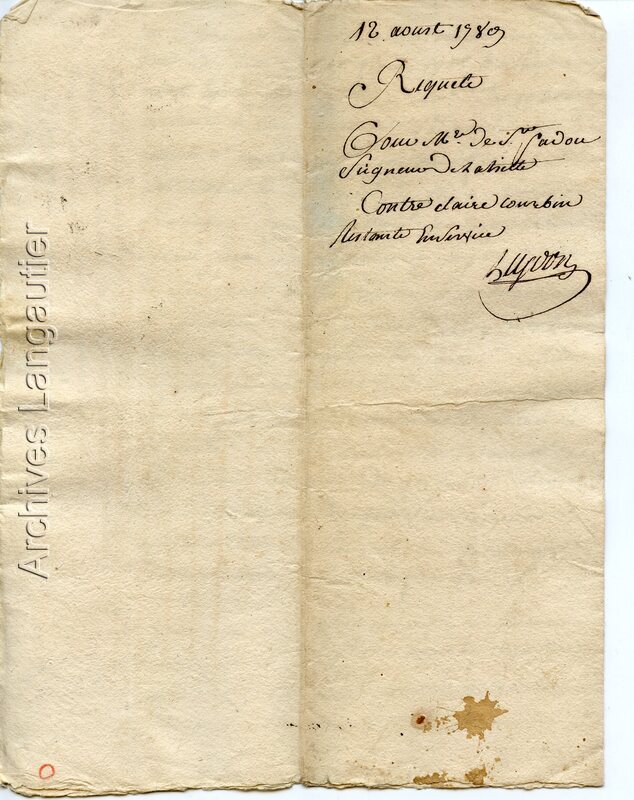 12 aoust 1789
Requete
Pour Mre de St
Seigneur De
Contre claire courbin
Restante En Service
Archives Langautier